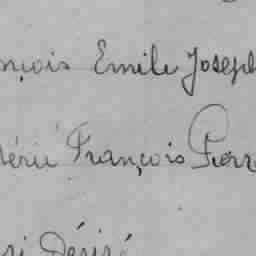 nçois Emile Joseph
érie François Pierr
ri Désiré